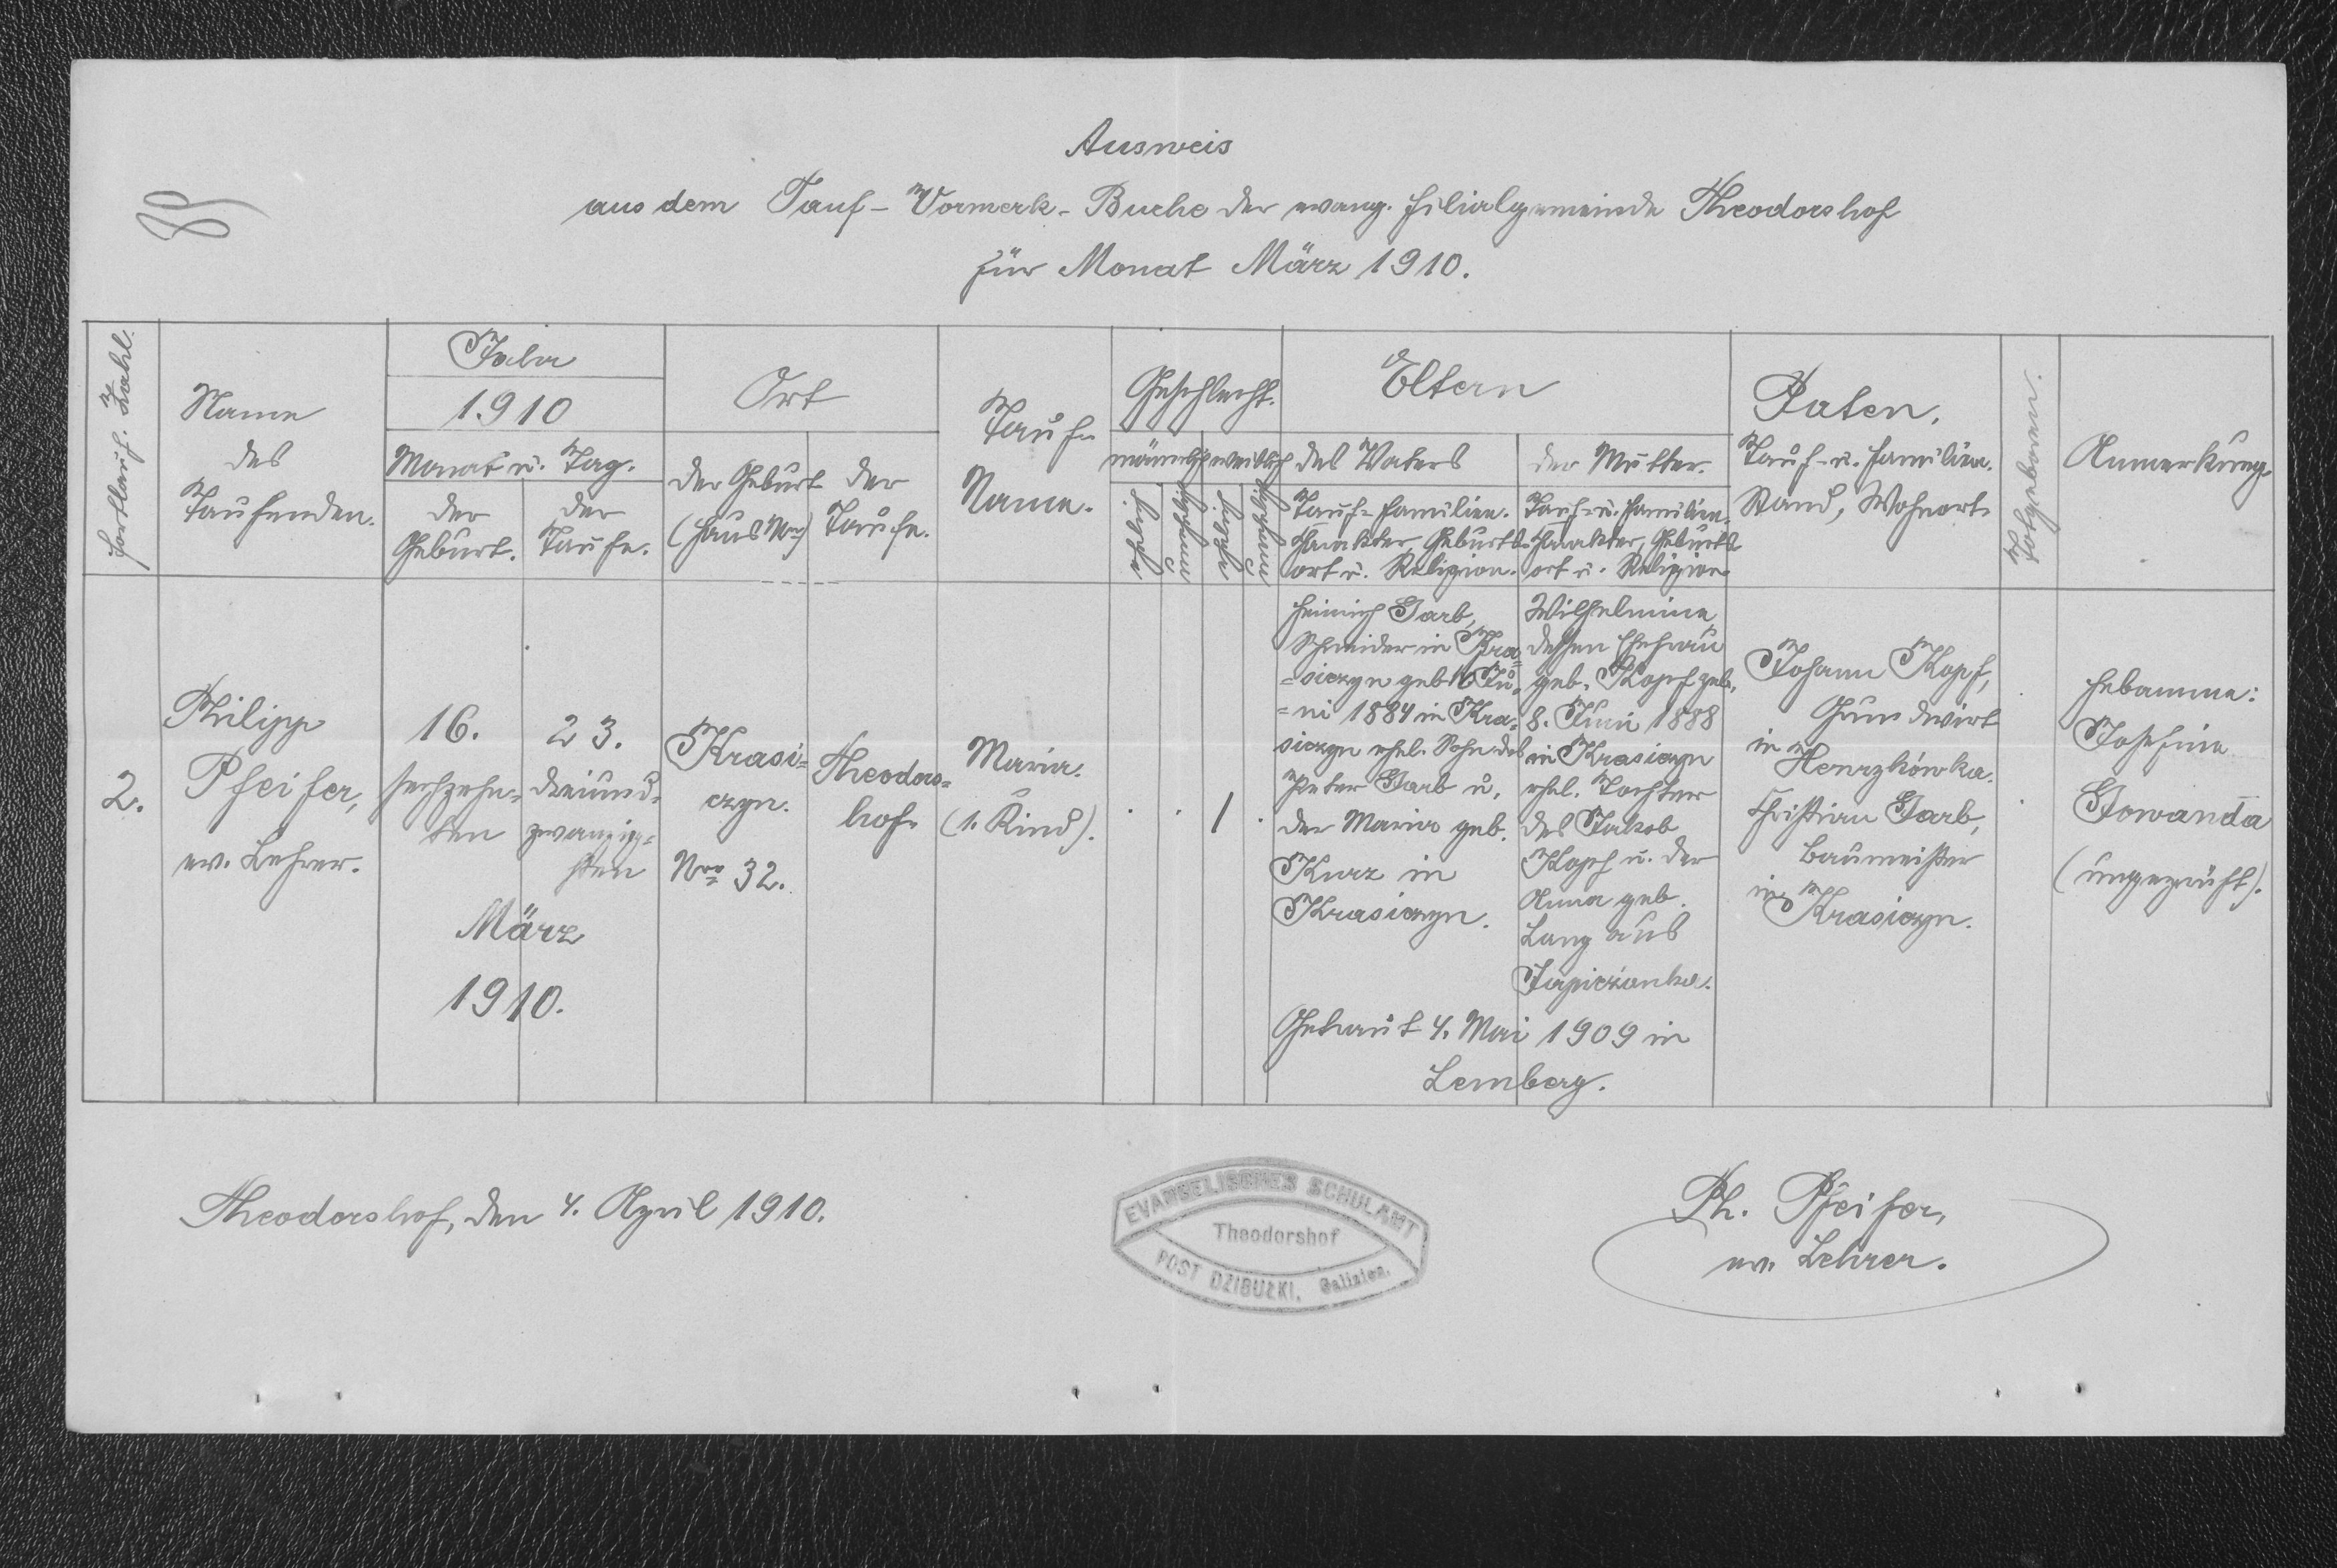 Ausweis
aus dem Tauf- Vormerk- Buche der evang. Filialgemeinde Theodorshof
für Monat März 1910.
Fortlauf. Zahl.
Name
des
Taufenden.
Jahr
1910
Monat u. Tag.
der
Geburt.
der
Taufe.
Ort
der Geburt
(Haus Nro)
der
Taufe.
Tauf-
Name.
Geschlecht.
männlich
weiblich
Eltern
des Vaters
Tauf- Familien.
Charakter, Geburts-
ort u. Religion.
der Mutter.
Tauf- u. Familien-
Charakter, Geburts-
ort u. Religion.
Paten.
Tauf- u. Familien.
Stand, Wohnort.
Totgeboren.
Anmerkung.
2.
Philipp
Pfeifer,
ev. Lehrer.
16.
sechzehn-
ten
23.
dreiund-
zwanzig-
sten
März
1910.
Krasi-
czyn.
Nro 32.
Theodors-
hof.
Maria.
(1. Kind).
1
Heinrich Garb,
Schneider in Kra-
=siczyn geb. 16 Ju-
=ni 1884 in Kra-
siczyn ehel. Sohn des
Peter Garb u.
der Maria geb.
Kurz in
Krasiczyn.
Wilhelmine
dessen Ehefrau
geb. Kopf geb.
8. Juni 1888
in Krasiczyn
ehel. Tochter
des Jakob
Kopf u. der
Anna geb.
Lang aus
Getraut 4. Mai 1909 in
Lemberg.
Johann Kopf,
Grundwirt
in
Christian Garb,
Baumeister
in Krasiczyn.
Hebamme:
Josefine
(ungeprüft).
Theodorshof, den 4. April 1910.
EVANGELISCHES SCHULAMT
Theodorshof
POST DZIBUŁKI, Galizien.
Ph. Pfeifer,
ev. Lehrer.